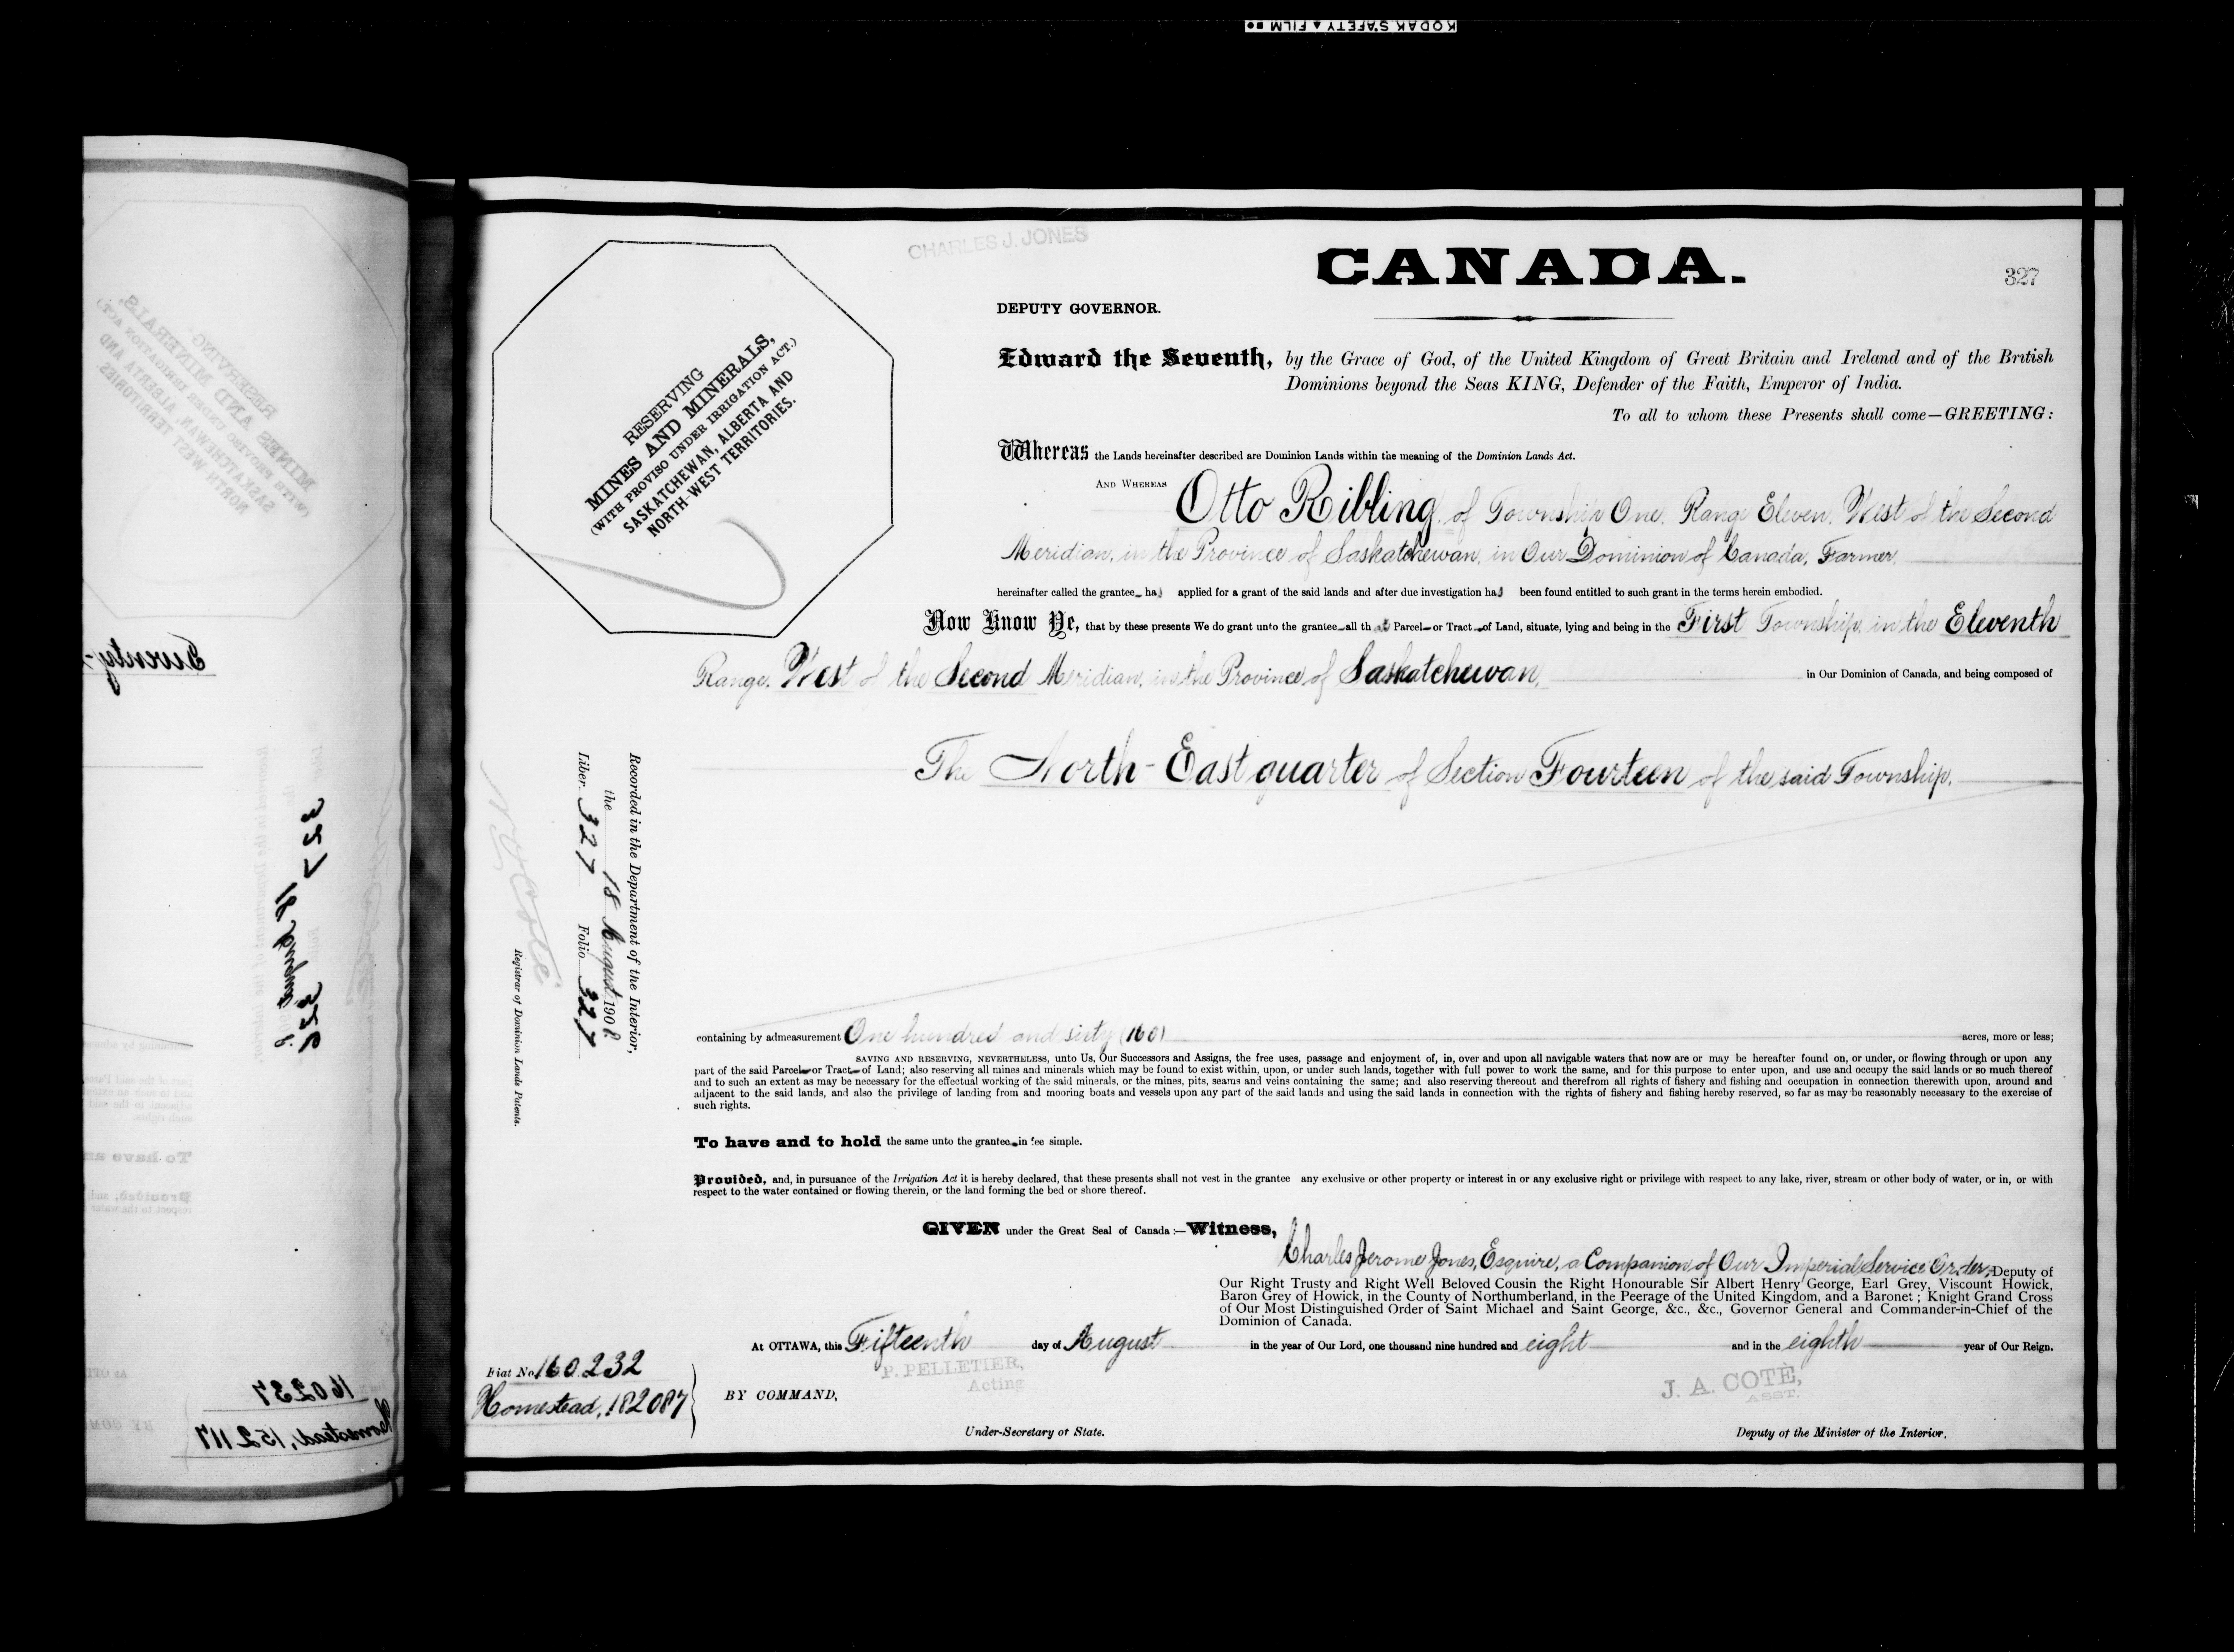 KODAK SAFETY FILM
CHARLES J. JONES
CANADA.
327
DEPUTY GOVERNOR.
RESERVING
MINES AND MINERALS,
(WITH PROVISO UNDER IRRIGATION ACT.)
SASKATCHEWAN, ALBERTA AND
NORTH-WEST TERRITORIES.
Edward the Seventh, by the Grace of God, of the United Kingdom of Great Britain and Ireland and of the British
Dominions beyond the Seas KING, Defender of the Faith, Emperor of India.
To all to whom these Presents shall come—GREETING:
Whereas the Lands hereinafter described are Dominion Lands within the meaning of the Dominion Lands Act.
AND WHEREAS Otto Ribling, of Township One, Range Eleven, West of the Second
Meridian, in the Province of Saskatchewan, in Our Dominion of Canada, Farmer,
hereinafter called the grantee has applied for a grant of the said lands and after due investigation has been found entitled to such grant in the terms herein embodied.
Now Know Ye, that by these presents We do grant unto the grantee all that Parcel or Tract of Land, situate, lying and being in the First Township, in the Eleventh
Range, West of the Second Meridian, in the Province of Saskatchewan, in Our Dominion of Canada, and being composed of
The North-East quarter of Section Fourteen of the said Township,
Recorded in the Department of the Interior,
the 18 August 1908
Liber 327 Folio 327
N O Coté
Registrar of Dominion Lands Patents.
containing by admeasurement One hundred and sixty (160) acres, more or less;
SAVING AND RESERVING, NEVERTHELESS, unto Us, Our Successors and Assigns, the free uses, passage and enjoyment of, in, over and upon all navigable waters that now are or may be hereafter found on, or under, or flowing through or upon any
part of the said Parcel or Tract of Land; also reserving all mines and minerals which may be found to exist within, upon, or under such lands, together with full power to work the same, and for this purpose to enter upon, and use and occupy the said lands or so much thereof
and to such an extent as may be necessary for the effectual working of the said minerals, or the mines, pits, seams and veins containing the same; and also reserving thereout and therefrom all rights of fishery and fishing and occupation in connection therewith upon, around and
adjacent to the said lands, and also the privilege of landing from and mooring boats and vessels upon any part of the said lands and using the said lands in connection with the rights of fishery and fishing hereby reserved, so far as may be reasonably necessary to the exercise of
such rights.
To have and to hold the same unto the grantee in fee simple.
Provided, and, in pursuance of the Irrigation Act it is hereby declared, that these presents shall not vest in the grantee any exclusive or other property or interest in or any exclusive right or privilege with respect to any lake, river, stream or other body of water, or in, or with
respect to the water contained or flowing therein, or the land forming the bed or shore thereof.
GIVEN under the Great Seal of Canada:—Witness,
Charles Jerome Jones, Esquire, a Companion of Our Imperial Service Order, Deputy of
Our Right Trusty and Right Well Beloved Cousin the Right Honourable Sir Albert Henry George, Earl Grey, Viscount Howick,
Baron Grey of Howick, in the County of Northumberland, in the Peerage of the United Kingdom, and a Baronet; Knight Grand Cross
of Our Most Distinguished Order of Saint Michael and Saint George, &c., &c., Governor General and Commander-in-Chief of the
Dominion of Canada.
At OTTAWA, this Fifteenth day of August in the year of Our Lord, one thousand nine hundred and eight and in the eighth year of Our Reign.
Fiat No 160.232
Homestead, 182087
P. PELLETIER,
Acting
BY COMMAND,
J. A. COTÉ,
ASST.
Under-Secretary of State.
Deputy of the Minister of the Interior.